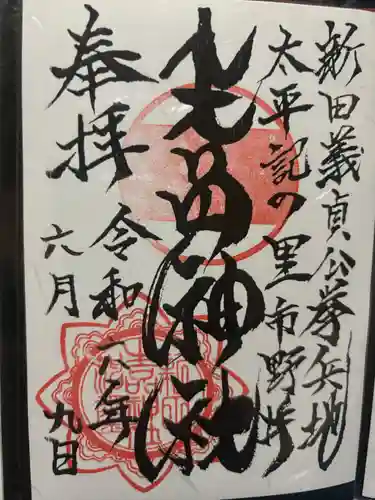 新田義貞公挙兵地
太平記の里市野井
生品神社
奉拝
令和元年
六月九日